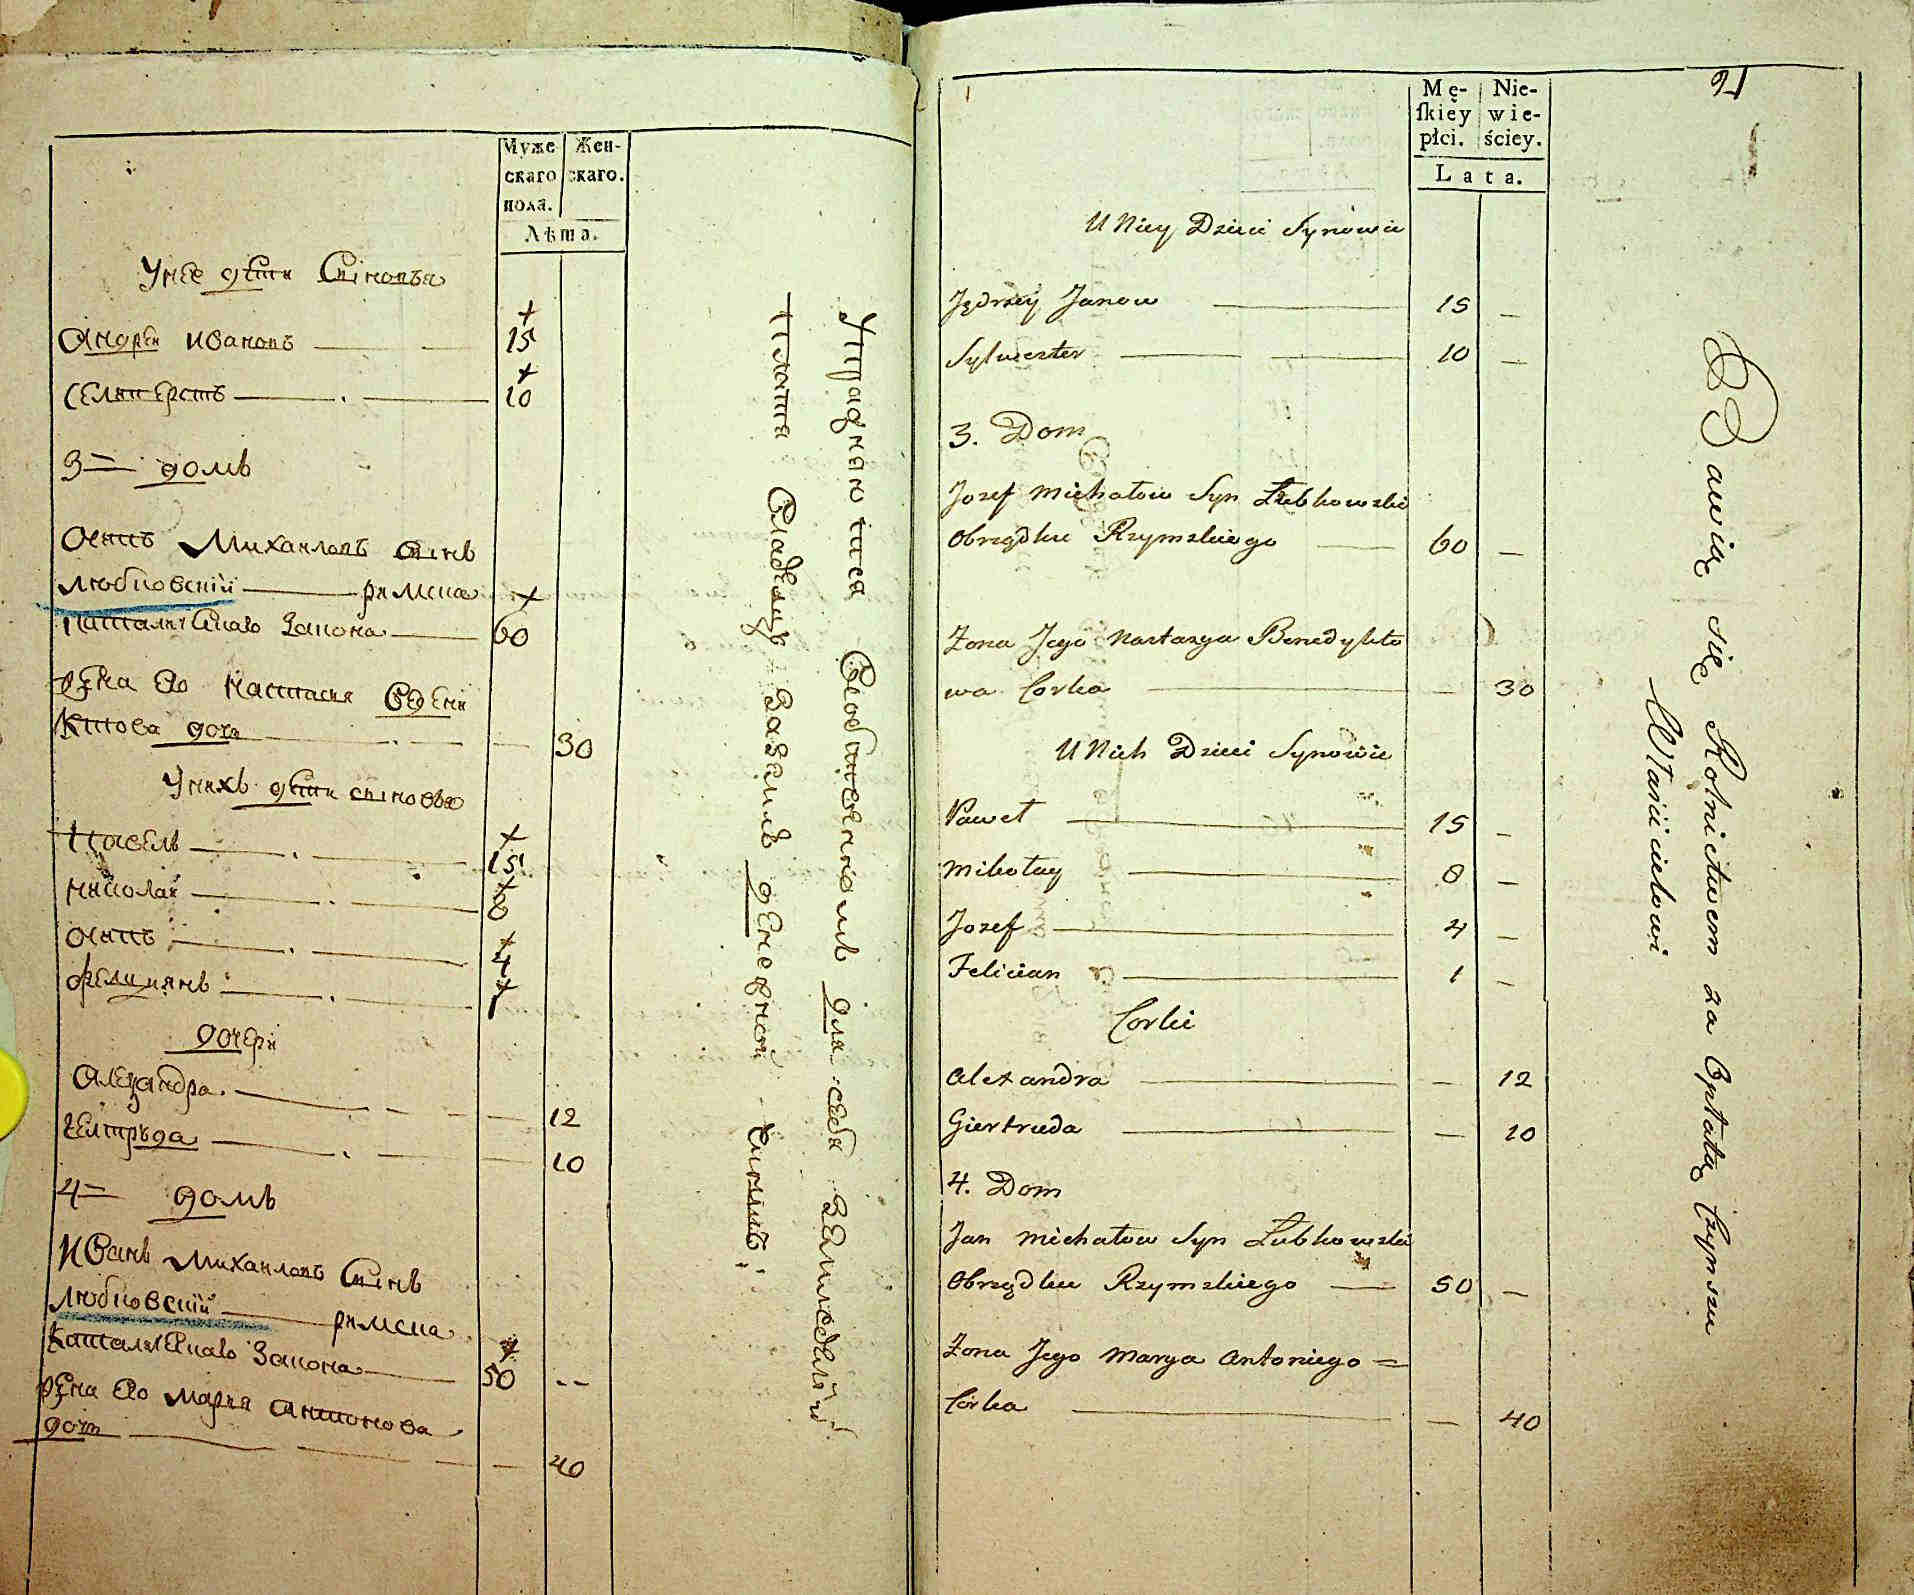 Муже
скаго
пола.
Жен-
скаго.
Лѣта.
Унее дѣти Сыновья
Андрѣй Ивановъ 15
Селверстъ 10
3 = домъ
Осипъ Михаиловъ Сынъ
Любковскій римска
католическаго Закона 60
жена его Настасия Бене
дыктова дочь 30
Унихъ дѣти сыновья
Павелъ 15
николай 8
осипъ 4
фелициянъ 1
дочери
Александра 12
10
4 = домъ
Иванъ Михаиловъ Сынъ
Любковскій римска
Католическаго Закона 50 --
жена его марья антонова
дочь 40
Упражняются Сѣобщеннѣомъ для себя земледѣлій
плотя Владелцу заземлю денежной чиншъ
Mę-
ſkiey
płci.
Nie-
wie-
ściey.
Lata.
21
U Niey Dzieci Synowie
Jędrzey Janow 15 –
Sylwester 10 –
3. Dom
Jozef Michałow Syn Lubkowski
Obrządku Rzymskiego 60 –
Zona Jego Nastazya Benedykto
wa Corka – 30
U Nich Dzieci Synowie
Paweł 15 –
Mikołay 8 –
Jozef 4 –
Felician 1 –
Corki
Alexandra – 12
Giertruda – 10
4. Dom
Jan Michałow Syn Lubkowski
Obrządku Rzymskiego 50 –
Zona Jego Marya Antoniego =
Córka – 40
Bawią się Rolnictwem za Opłatą Czynszu
Właścicielowi